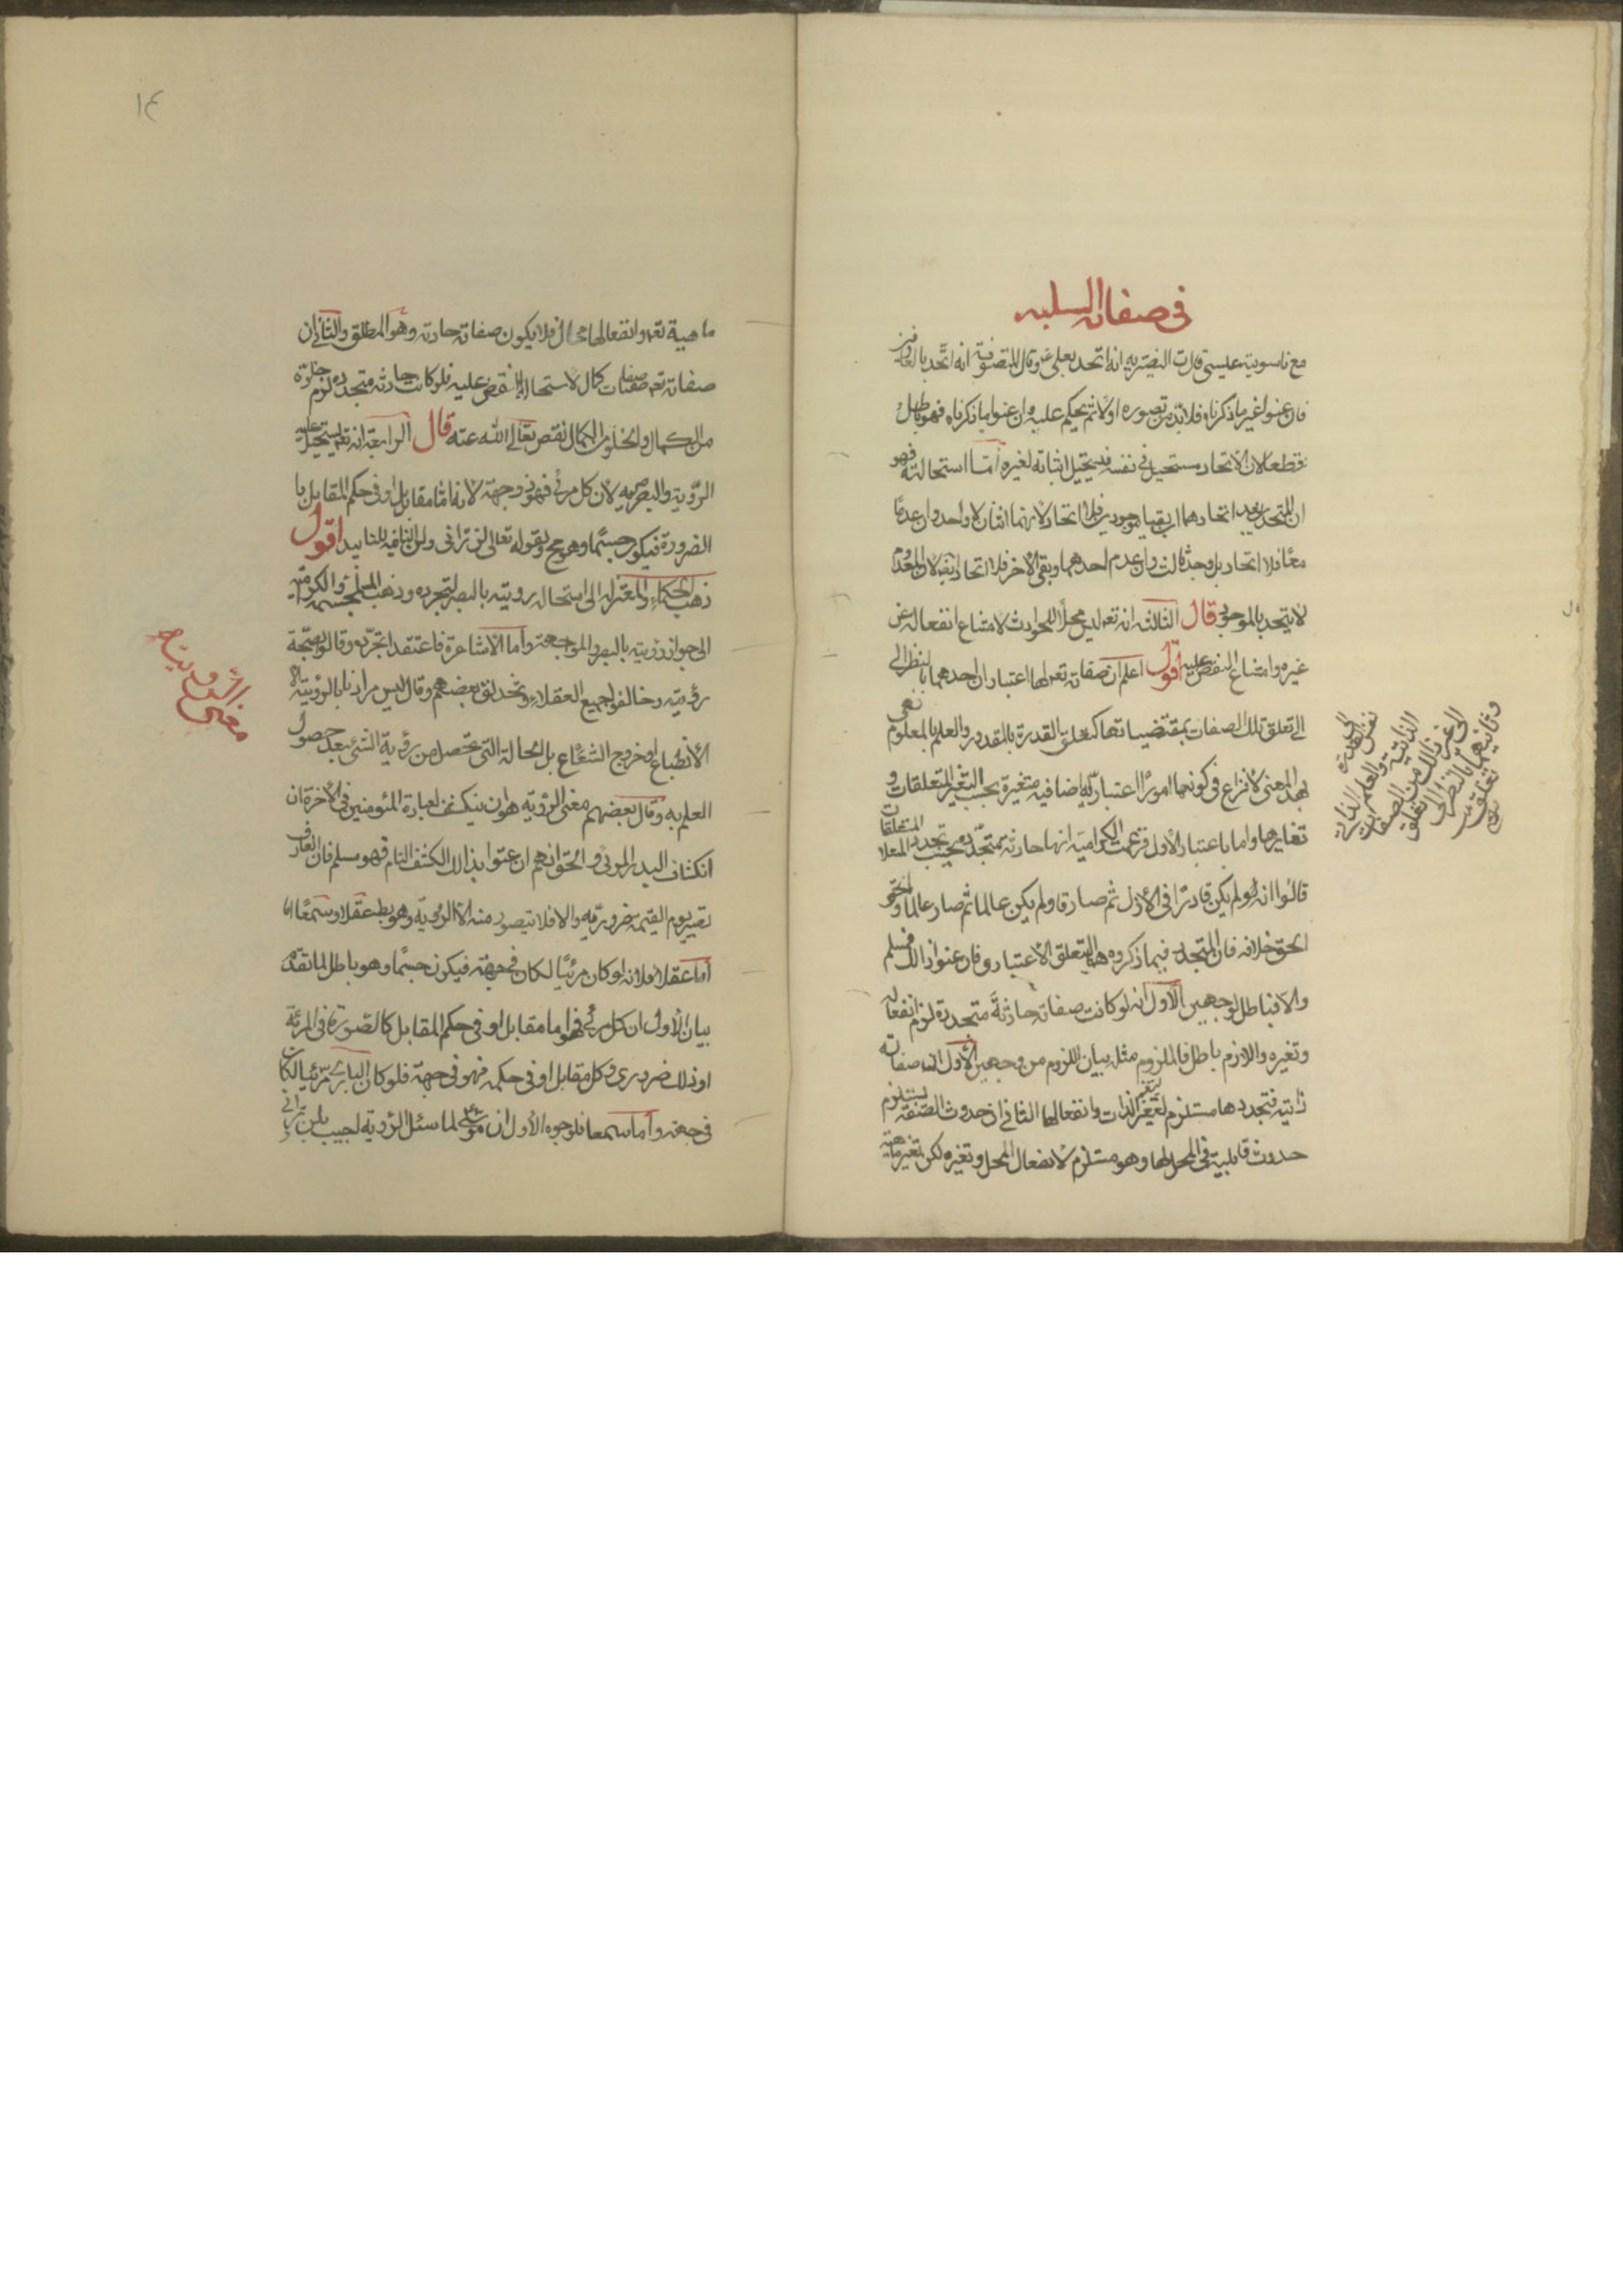 فی صفاته السلبیه
مع ناسوتية عيسى وقالت النصيريه انه اتحد بعلي ع وقال المتصوفية انه اتحد بالعارفين
فان عنوا غير ما ذكرناه فلابد من تصوره اولا ثم يحكم عليه وان عنوا ما ذكرناه فهو باطل
قطعا لان الاتحاد مستحيل في نفسه فيستحيل اثباته لغيره اما استحالته فهو
ان المتحدين بعد اتحادهما ان بقيا موجودين فلا اتحاد لانهما اثنان لا واحد وان عدما
معا فلا اتحاد بل وجد ثالث وان عدم احدهما وبقي الاخر فلا اتحاد ايضا لان المعدوم
لا يتحد بالموجود قال الثالثه انه تعه ليس محلا للحوادث لامتناع انفعاله عن
غيره وامتناع النقص عليه اقول اعلم ان صفاته تعه لها اعتباران احدهما بالنظر الى
الى تعلق تلك الصفات بمقتضياتها كتعلق القدرة بالمقدور والعلم بالمعلوم
بهذا المعنى لا نزاع في كونها امورا اعتباريه اضافيه متغيرة بحسب التغير المتعلقات و
تغايرها واما باعتبار الاول فزعمت الكراميه انها حادثه متجدده بحسب تجدد المتعلقات
قالوا انه لو لم يكن قادرا في الازل ثم صار قا ولم يكن عالما ثم صار عالما والحق
الحق خلافه فان المتجدد فيما ذكروه هو التعلق الاعتباري فان عنوا ذالك فمسلم
والا فباطل لوجهين الاول انه لو كانت صفاته حادثة متجددة لزم انفعاله
وتغيره واللازم باطل فالملزوم مثله بيان اللزوم من وجهين الاول ان صفاته
ذاتيه فتجددها مستلزم لتغير الذات وانفعالها الثاني ان حدوث الصفه يستلزم
حدوث قابلية في المحل لها وهو مستلزم لانفعال المحل وتغيره لكن تغير ماهية
نفس القدرة
الذاتية والعلم الذاتي
الى غير ذالك من الصفات
وثانيهما بالنظر الى تعلق
١٤
ماهية تعه وانفعالها محال فلا يكون صفاته حادثه وهو المطلق والثاني ان
صفاته تعه صفات كمال لاستحالة النقص عليه فلو كانت حادثه متجدده لزم خلوه
من الكمال والخلو من الكمال نقص تعالى الله عنه قال الرابعة انه تعه يستحيل عليه
الرؤية البصريه لان كل مرئي فهو ذو جهة لانه اما مقابل او في حكم المقابل با
الضرورة فيكون جسما وهو مح ولقوله تعالى لن تراني ولن النافيه للتابيد اقول
ذهب الحكماء والمعتزله الى استحاله رويته بالبصر لتجرده وذهب المجسمه والكراميه
الى جواز رؤيته بالبصر المواجهة واما الاشاعرة فاعتقدوا تجرده وقالوا بصحة
رؤيته وخالفوا جميع العقلاء وتحذلق بعضهم وقال ليس مرادنا بالرؤية الا
الانطباع او خروج الشعاع بل الحالة التي تحصل من رؤية الشئ بعد حصول
العلم به وقال بعضهم معنى الرؤيه هو ان ينكشف لعباده المئومنين في الاخرة ان
انكشاف البدر المرئي والحق انهم ان عنوا بذالك الكشف التام فهو مسلم فان المعارف
تصير يوم القيمة ضروريه والا فلا يتصور منه الا الرؤية وهو بط عقلا وسمعا
اما عقلا فلانه لو كان مرئيا لكان في جهة فيكون جسما وهو باطل لما تقدم
بيان الاول ان كل مرئي فهو اما مقابل او في حكم المقابل كالصورة في المرئة
او ذلك ضروري وكل مقابل او في حكمه فهو في جهة فلو كان الباري مرئيا لكان
في جهة واما سمعا فلوجوه الاول ان موسى لما سئل الرؤية اجيب بلن تراني
معنى الرؤية